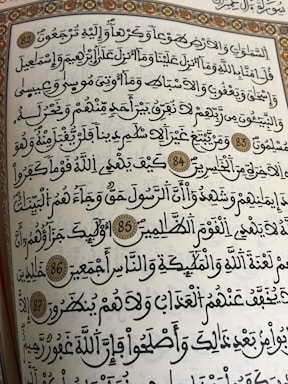 سورة آل عمران
السموات والأرض طوعا وكرها وإليه ترجعون 82
قل آمنا بالله وما أنزل علينا وما أنزل على إبرهيم وإسمعيل
وإسحق ويعقوب والأسباط وما أوتي موسى وعيسى
والنبيئون من ربهم لا نفرق بين أحد منهم ونحن له
مسلمون 83 ومن يبتغ غير الإسلم دينا فلن يقبل منه وهو
الآخرة من الخسرين 84 كيف يهدي الله قوما كفروا
إيمنهم وشهدوا أن الرسول حق وجاءهم البينت
لا يهدي القوم الظلمين 85 أولئك جزاؤهم أن
لعنة الله والملئكة والناس أجمعين 86 خلدين
لا يخفف عنهم العذاب ولا هم ينظرون 87 إلا
تابوا من بعد ذلك وأصلحوا فإن الله غفور رحيم